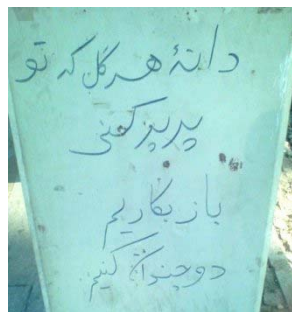 دانۀ هر گل که تو
پرپر کنی
باز بکاریم
دوچندان کنیم